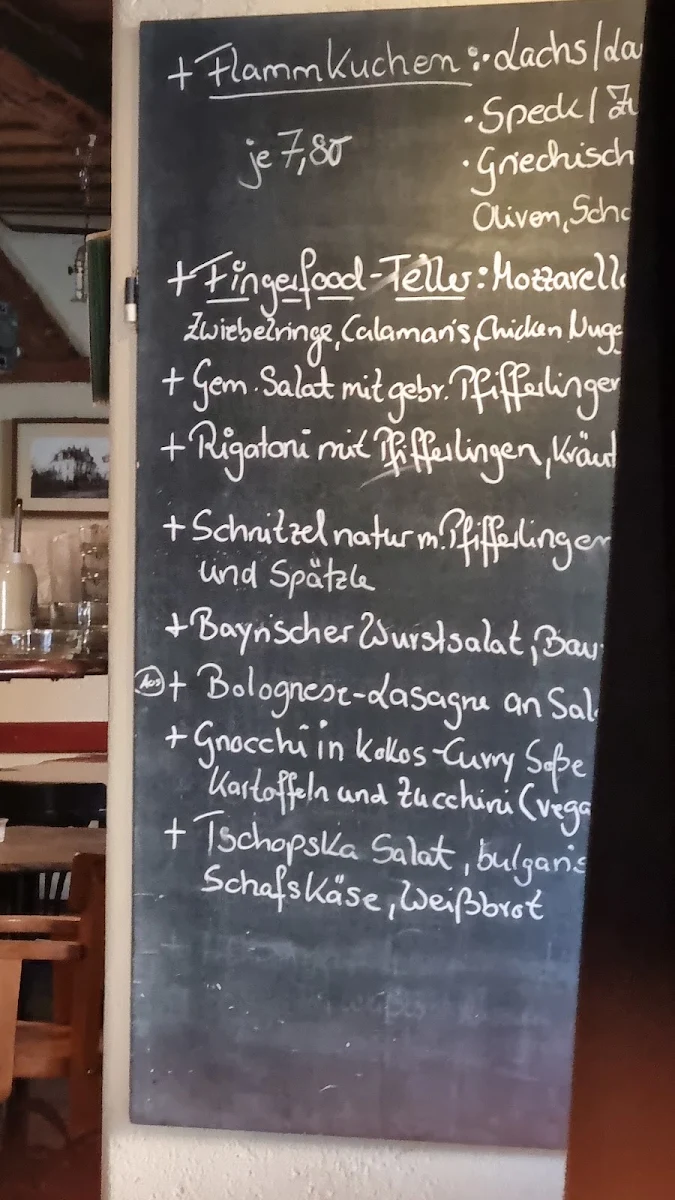 + Flammkuchen: · Lachs/La
· Speck/Zu
je 7,80
· Griechisch
Oliven, Scha
+ Fingerfood-Teller: Mozzarella
Zwiebelringe, Calamaris, Chicken Nugg
+ Gem. Salat mit gebr. Pfifferlingen
+ Rigatoni mit Pfifferlingen, Kräut
+ Schnitzel natur m. Pfifferlingen
und Spätzle
+ Bayrischer Wurstsalat, Bau
Aus + Bolognese-Lasagne an Sal
+ Gnocchi in Kokos-Curry Soße
Kartoffeln und Zucchini (vega
+ Tschopska Salat, bulgaris
Schafskäse, Weißbrot